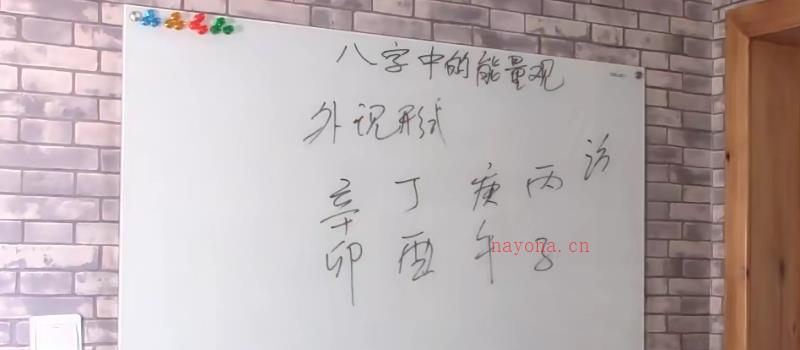 八字中的能量观
外现形式
辛 丁 庚 丙
卯 酉 午 子
nayona.cn